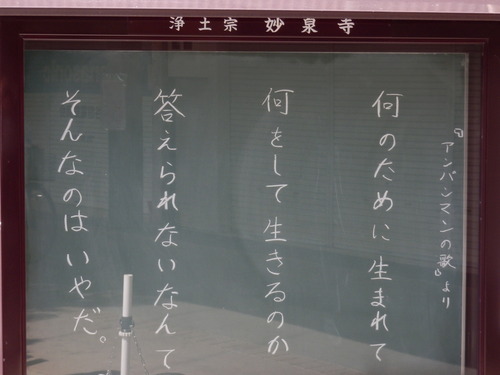 浄土宗 妙泉寺
『アンパンマンの歌』より
何のために生まれて
何をして生きるのか
答えられないなんて
そんなのはいやだ。